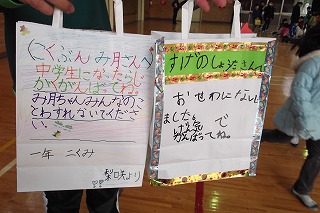 こくぶん み月さんへ
中学生になったらじ
がんばってね。
み月ちゃんみんなのこ
とわすれないでくださ
い
一年 二くみ
梨咲より
すげのしょうたさん
おせわになり
ました。
で
頑ばってね。